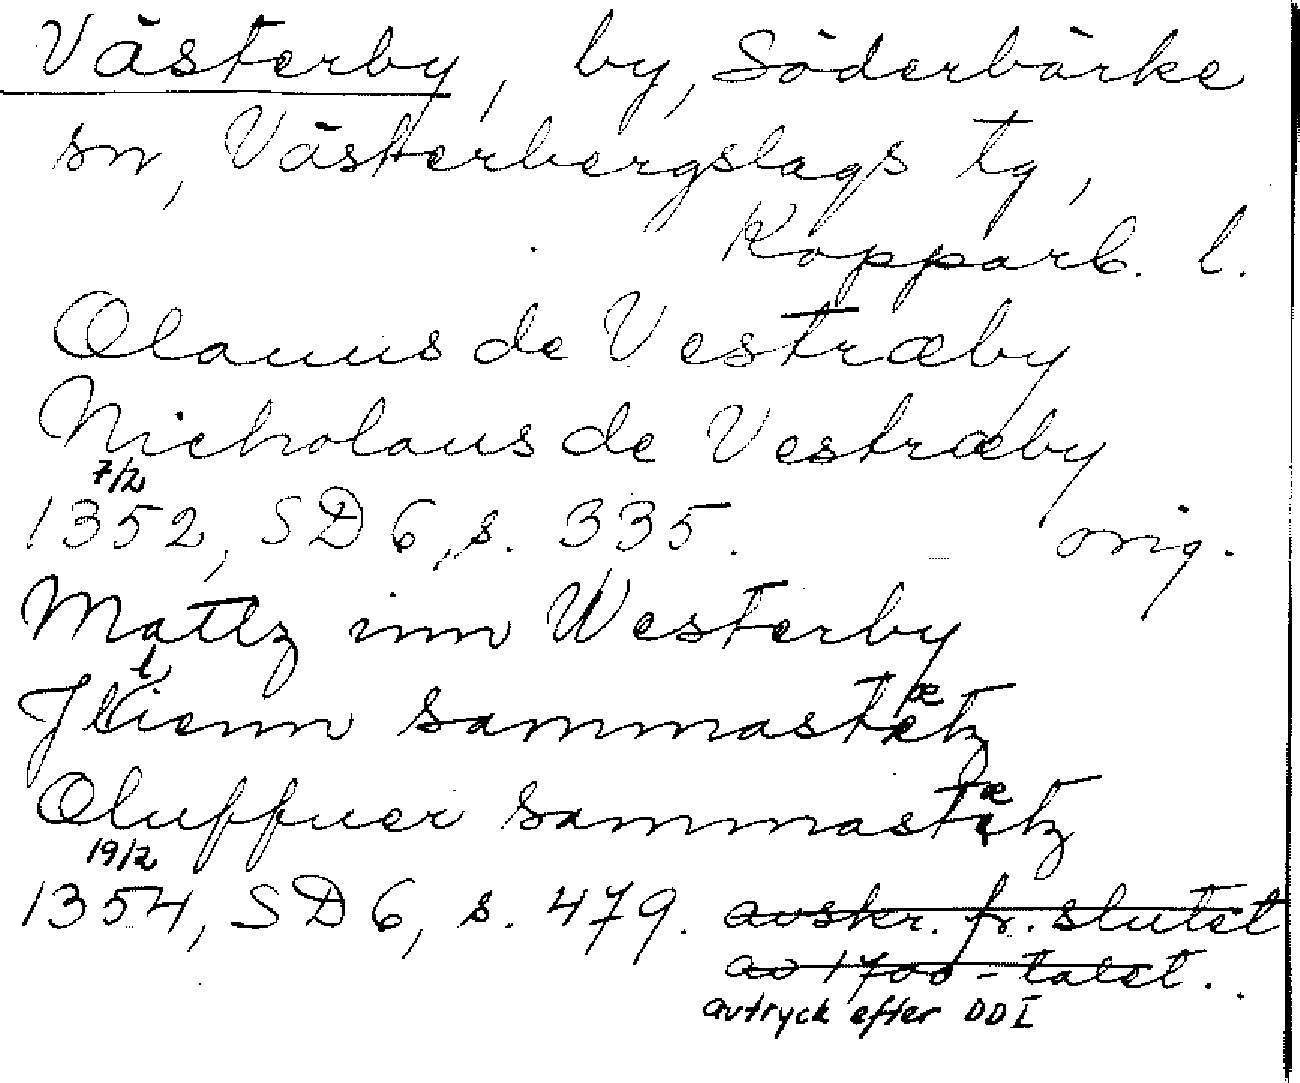 Västerby, by, Söderbärke
sn, Västerbergslags tg,
Kopparb. l.
Olauus de Vestræby
Nicholaus de Vestræby
7/2
1352, SD 6, s. 335. orig.
Mattz inn Westerby
sammastætz
Oluffuer sammastætz
19/2
1354, SD 6, s. 479. avskr. fr. slutet
av 1700-talet.
avtryck efter DD I